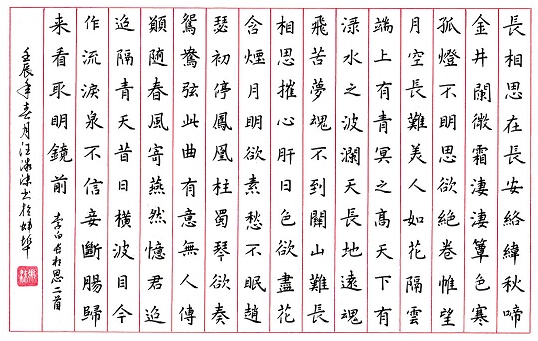 長相思在長安絡緯秋啼
金井闌微霜淒淒簟色寒
孤燈不明思欲絕卷帷望
月空長難美人如花隔雲
端上有青冥之高天下有
淥水之波瀾天長地遠魂
飛苦夢魂不到關山難長
相思摧心肝日色欲盡花
含煙月明欲素愁不眠趙
瑟初停鳳凰柱蜀琴欲奏
鴛鴦弦此曲有意無人傳
顚隨春風寄燕然憶君迢
迢隔青天昔日橫波目今
作流淚泉不信妾斷腸歸
来看取明鏡前 李白長相思二首
壬辰年春月汪